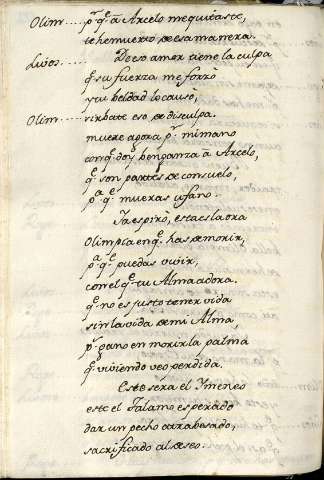 Olim.... pr. q.e a Arcelo me quitaste,
te he muerto de esa manera.
Lidos.... De eso amor tiene la culpa
q.e su fuerza me forzò
y tu beldad lo causò,
Olim.... sirbate eso, de disculpa.
muere agora pr. mi mano
con q.e doy benganza à Arcelo,
q.e son partes de consuelo,
pa. q.e mueras ufano.
Ya espirò, esta es la ora
Olimpia en q.e has de morir,
pa. q.e puedas vivir,
con el q.e tu Alma adora.
q.e no es justo tener vida
sin la vida de mi Alma,
pr. gano en morir la palma
q.e viviendo veo perdida.
Este sera el Ymeneo
este el Talamo esperado
dar un pecho atrabesado,
sacrificado al deseo.